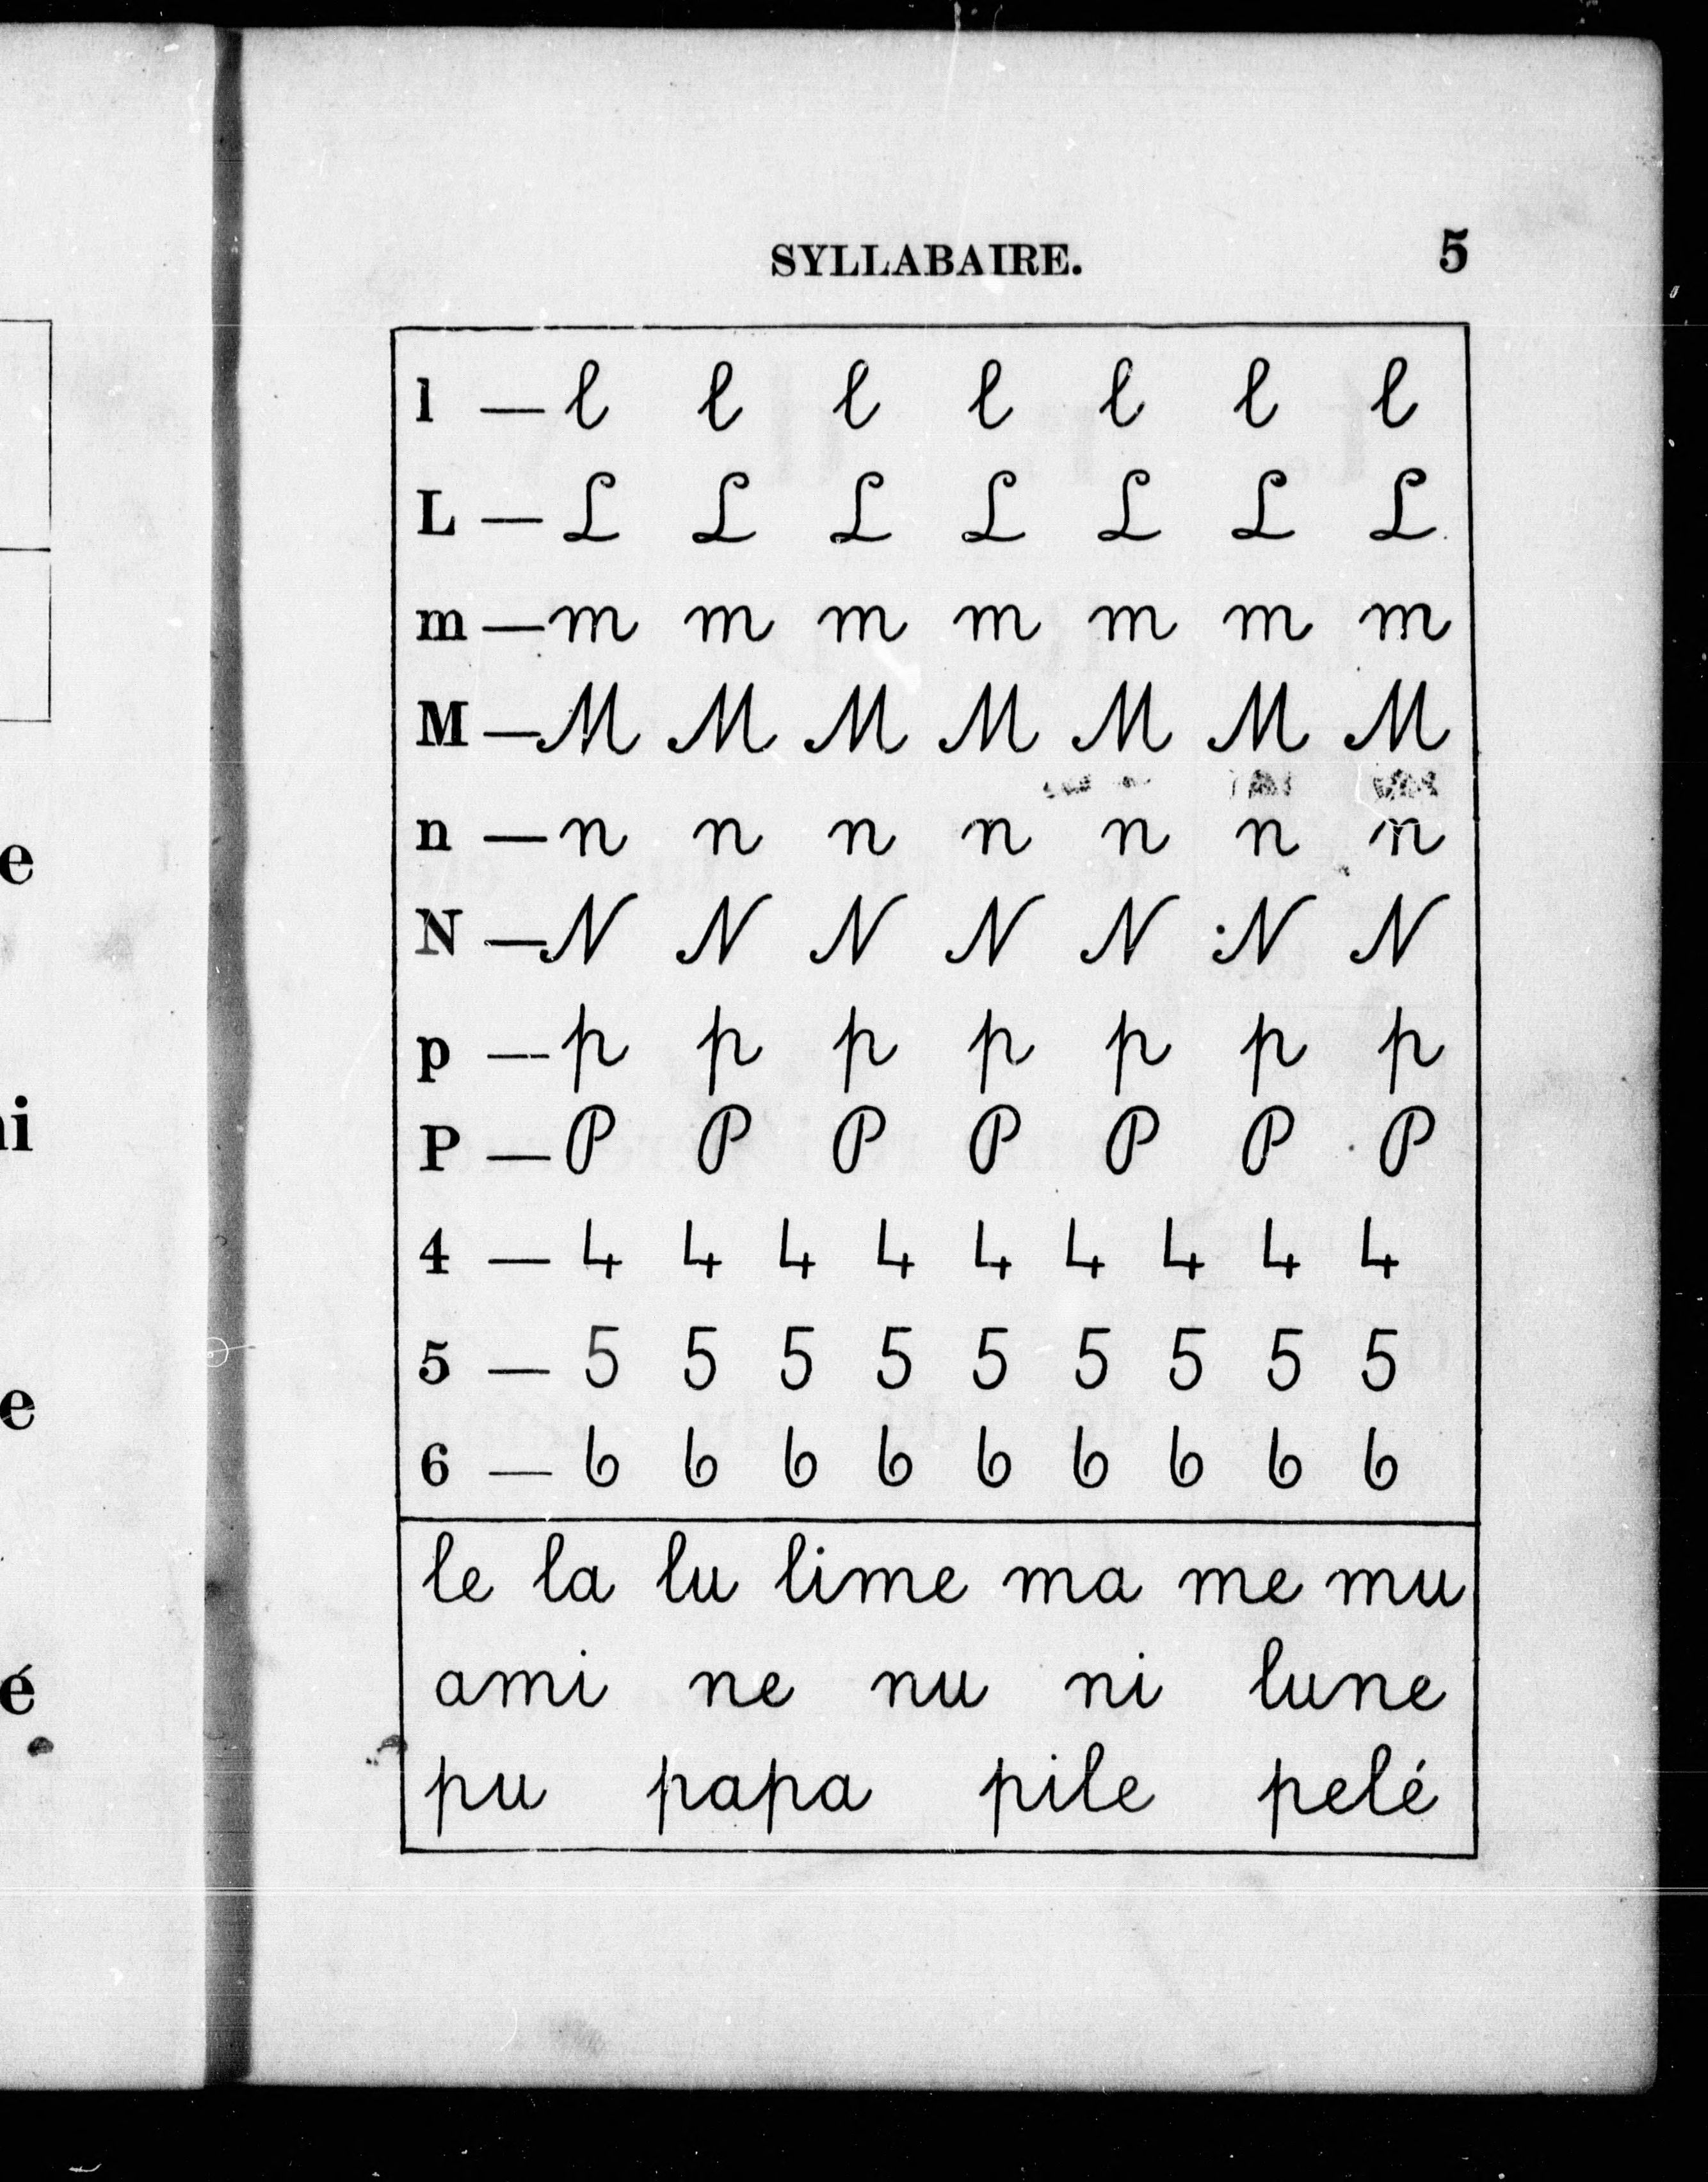 SYLLABAIRE. 5
l — l l l l l l l
L — L L L L L L L
m — m m m m m m m
M — M M M M M M M
n — n n n n n n n
N — N N N N N N N
p — p p p p p p p
P — P P P P P P P
4 — 4 4 4 4 4 4 4 4 4
5 — 5 5 5 5 5 5 5 5 5
6 — 6 6 6 6 6 6 6 6 6
le la lu lime ma me mu
ami ne nu ni lune
pu papa pile pelé